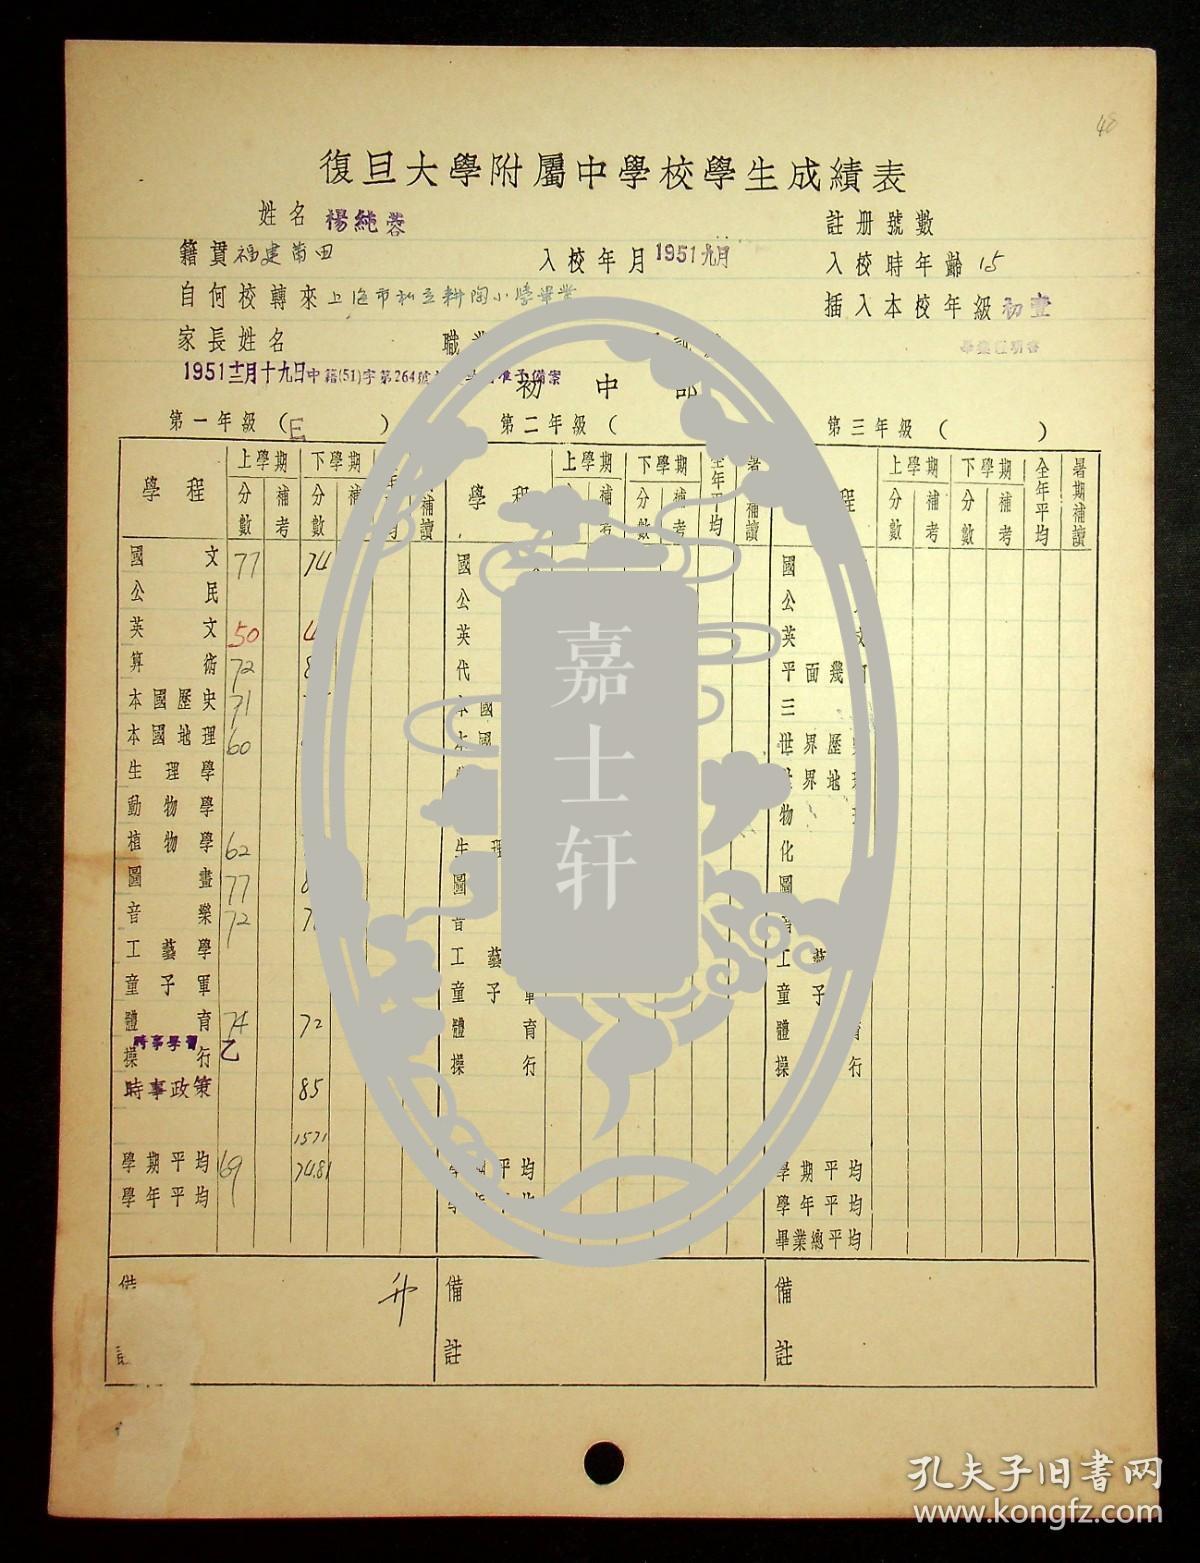 48
復旦大學附屬中學校學生成績表
姓名 楊純蓉 註冊號數
籍貫 福建莆田 入校年月 1951九月 入校時年齡 15
自何校轉來 上海市私立耕陶小學畢業 插入本校年級 初壹
家長姓名 職業
畢業證明書
1951十二月十九日中籍(51)字第264號 准予備案
初中部
第一年級 (E ) 第二年級 ( 第三年級 ( )
學程 上學期 下學期 學程 上學期 下學期 全年平均 暑 補讀 程 上學期 下學期 全年平均 暑期補讀
分數 補考 分數 補 補讀 補考 分數 補考 分數 補考 分數 補考
國文 77 74 國 國
公民 公 公
英文 50 英 英文
算術 72 代 平面幾何
本國歷史 71 本國 三
本國地理 60 本國 世界歷史
生理學 世界地理
動物學 物理
植物學 62 生理 化
圖畫 77 圖 圖
音樂 72 音 音
工藝學 工藝 工藝
童子軍 童子軍 童子
體育 74 72 體育 育
時事學習
操行 乙 操行 行
時事政策 85
1571
學期平均 69 74.81 學期平均 學期平均
學年平均 學年平均 學年平均
畢業總平均
備 升 備 備
註 註 註
嘉士轩
孔夫子旧书网
www.kongfz.com